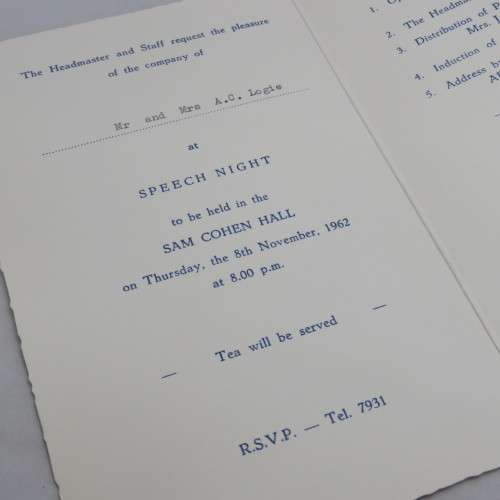 The Headmaster and Staff request the pleasure
of the company of
Mr and Mrs A.C. Logie
at
SPEECH NIGHT
to be held in the
SAM COHEN HALL
on Thursday, the 8th November, 1962
at 8.00 p.m.
— Tea will be served —
R.S.V.P. — Tel. 7931
1.
2. The Headma
3. Distribution of P
Mrs.
4. Induction of
5. Address b